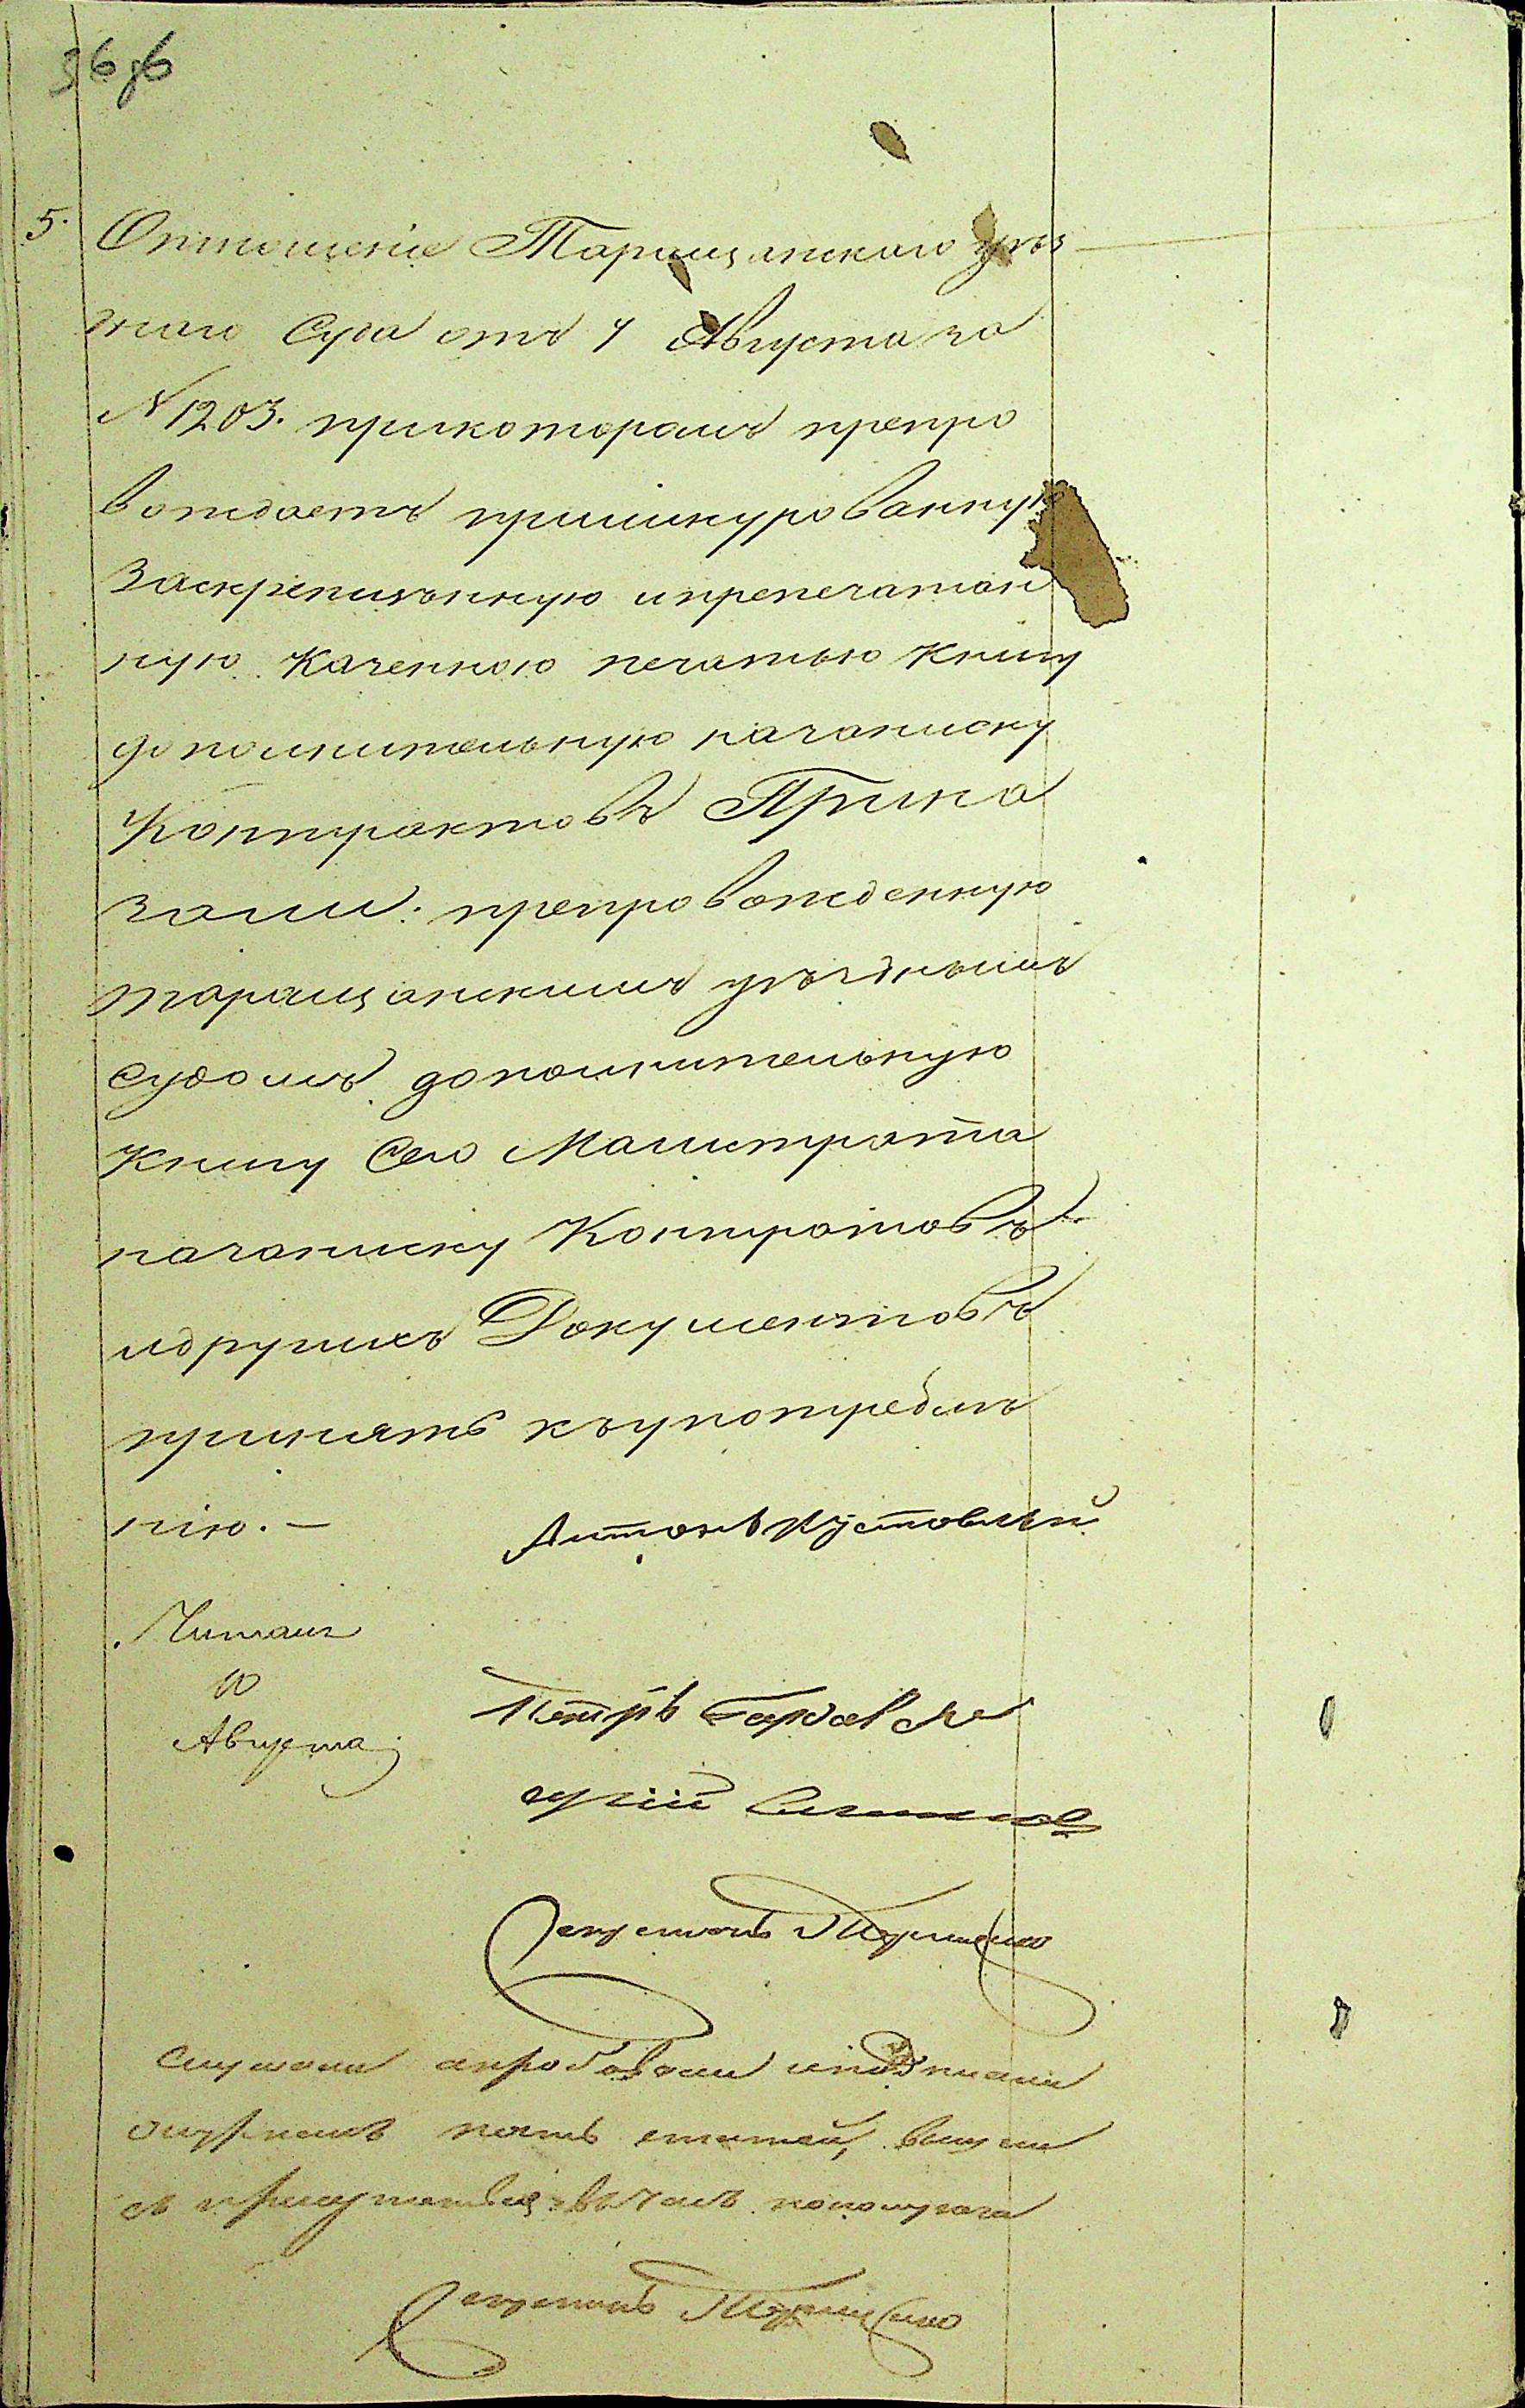 36 об
5. Отношение Таращанского уез
наго Суда отъ 4 Августа за
N 1203. прикоторамъ препро
вождаетъ пришнурованную
Заскрепленную ипрепечатан
ную Казенною печатью Книгу
дополнительную назаписку
Контрактовъ Прика
зали: препровожденную
таращанскимъ уезднымъ
судомъ дополнительную
Книгу Сего Магистрата
назаписку Контратовъ
идругихъ Документовъ
принять къупотребле
нію. — Антонъ Кустовский
Читалъ
10
Августа
Петръ
юрий
Секретарь
слушали апробовали иподписали
пять статей,
съ присутствія
Секретарь